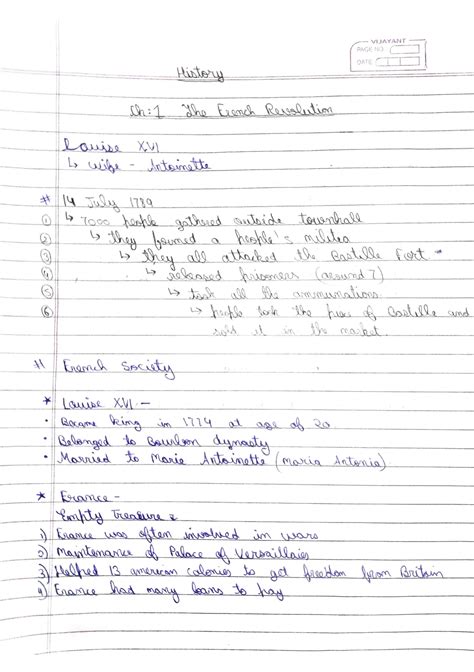 VIJAYANT
PAGE NO.
DATE
History
Ch:1 The French Revolution
Louise XVI
↳ wife - Antoinette
# 14 July 1789
① ↳ 7000 people gathered outside townhall
② ↳ they formed a people's militia
③ ↳ they all attacked the Bastille Fort -
④ ↳ released prisoners (around 7)
⑤ ↳ took all the ammunations
⑥ ↳ people took the of Bastille and
sold it in the market.
# French Society
* Louise XVI -
• Became king in 1774 at age of 20
• Belonged to Bourbon dynasty
• Married to Marie Antoinette (Maria Antonia)
* France -
Empty Treasure
1) France was often involved in wars
2) Maintenance of Palace of Versaillaies
3) Helped 13 american colonies to get freedom from Britain
4) France had many loans to pay